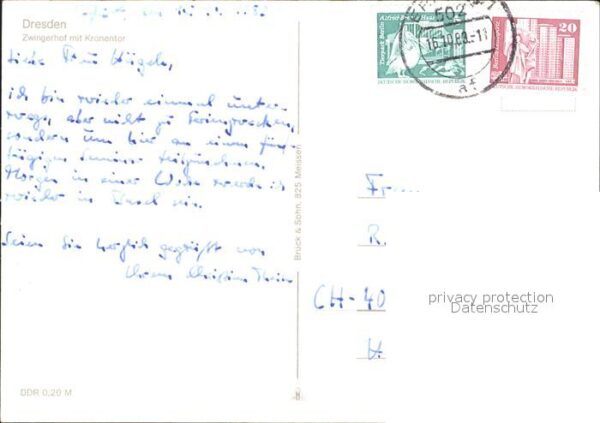 Dresden
Zwingerhof mit Kronentor
Liebe Frau Hügeli,
ich bin wieder einmal unter-
wegs, aber nicht zu
sondern um hier an einem fünf-
tägigen Seminar teilzunehmen.
Morgen in einer Woche werde ich
wieder in Basel sein.
Seien Sie herzlich gegrüsst von
Ihrem Christian
Brück & Sohn, 825 Meissen
DDR 0,20 M
Tierpark Berlin
DEUTSCHE DEMOKRATISCHE REPUBLIK
20
DEUTSCHE DEMOKRATISCHE REPUBLIK
502
16.10.89.-11
at
Fr
R.
CH-40
H.
privacy protection
Datenschutz